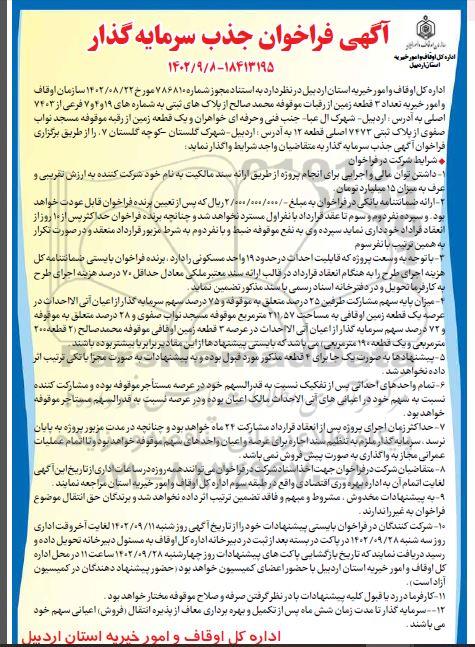 سازمان اوقاف و امور خیریه
اداره کل اوقاف و امور خیریه
استان اردبیل
آگهی فراخوان جذب سرمایه گذار
۱۴۰۲/۹/۸-۱۸۴۱۳۱۹۵
اداره کل اوقاف و امور خیریه استان اردبیل در نظر دارد به استناد مجوز شماره ۷۸۶۸۱۰ مورخ ۱۴۰۲/۰۸/۲۲ سازمان اوقاف
و امور خیریه تعداد ۳ قطعه زمین از رقبات موقوفه محمد صالح از پلاک های ثبتی به شماره های ۱۹ و ۴ و ۷ فرعی از ۷۴۰۳
اصلی به آدرس : اردبیل - شهرک ال عبا- جنب فنی و حرفه ای خواهران و یک قطعه زمین از رقبه موقوفه مسجد نواب
صفوی از پلاک ثبتی ۷۴۷۳ اصلی قطعه ۱۲ به آدرس : اردبیل-شهرک گلستان -کوچه گلستان ۷، را از طریق برگزاری
فراخوان آگهی جذب سرمایه گذار به متقاضیان واجد شرایط واگذار نماید:
شرایط شرکت در فراخوان
۱- داشتن توان مالی و اجرایی برای انجام پروژه از طریق ارائه سند مالکیت به نام خود شرکت کننده به ارزش تقریبی و
عرف به میزان ۱۵ میلیارد تومان
۲-ارائه ضمانتنامه بانکی در فراخوان به مبلغ ۲/۰۰۰/۰۰۰/۰۰۰/- ریال که پس از تعیین برنده فراخوان قابل عودت خواهد
بود . و سپرده نفر دوم و سوم تا عقد قرارداد با نفر اول مسترد نخواهد شد و چنانچه برنده فراخوان حداکثر پس از ۱۰ روز از
انعقاد قرارداد خودداری نماید سپرده وی به نفع موقوفه ضبط و با نفر دوم به شرط مزبور قرارداد منعقد و در صورت تکرار
به همین ترتیب با نفر سوم
۳- با توجه به وسعت پروژه که قابلیت احداث در حدود ۱۹ واحد مسکونی را دارد . برنده فراخوان بایستی ضمانتنامه کل
هزینه اجرای طرح را به هنگام انعقاد قرارداد در قالب ارائه سند معتبر ملکی معادل حداقل ۷۰ درصد هزینه اجرای طرح
به کارفرما تحویل و در دفترخانه اسناد رسمی با سند مذکور تضمین نماید.
۴- میزان پایه سهم مشارکت طرفین ۲۵ درصد متعلق به موقوفه و ۷۵ درصد سهم سرمایه گذار از اعیان آتی الاحداث در
عرصه یک قطعه زمین اوقافی به مساحت ۲۱۱.۵۷ مترمربع موقوفه مسجد نواب صفوی و ۲۸ درصد متعلق به موقوفه
و ۷۲ درصد سهم سرمایه گذار از اعیان آتی الاحداث در عرصه ۳ قطعه زمین اوقافی موقوفه محمدصالح (۲ قطعه ۲۰۰
مترمربعی و یک قطعه ۱۹۰ مترمربعی) می باشد که بایستی پیشنهادها از این مقادیر برابر یا بیشتر بوده باشند
۵- پیشنهادها به صورت یک جا برای ۴ قطعه مذکور مورد قبول بوده و به پیشنهادات به صورت مجزا یا تکی ترتیب اثر
داده نخواهد شد.
۶- تمام واحدهای احداثی پس از تفکیک نسبت به قدرالسهم خود در عرصه مستأجر موقوفه بوده و مشارکت کننده
نسبت به سهم خود در اعیانی های آتی الاحداث مالک اعیان بوده و در عرصه نسبت به قدرالسهم مستأجر موقوفه
خواهد بود .
۷- حداکثر زمان اجرای پروژه پس از انعقاد قرارداد مشارکت ۲۴ ماه خواهد بود و چنانچه در مدت مزبور پروژه به پایان
نرسد . سرمایه گذار ملزم به تنظیم سند اجاره برای عرصه و اعیان واحدهای سهم موقوفه خواهد بود و تا اتمام عملیات
عمرانی مجاز به واگذاری به صورت پیش فروش نمی باشد .
۸- متقاضیان شرکت در فراخوان جهت اخذ اسناد شرکت در فراخوان می توانند همه روزه در ساعات اداری از تاریخ این آگهی
لغایت اتمام آن به اداره بهره وری اقتصادی واقع در طبقه سوم اداره کل اوقاف و امور خیریه استان مراجعه نمایند .
۹- به پیشنهادات مخدوش ، مشروط و مبهم و فاقد تضمین ترتیب اثر داده نخواهد شد و برندگان حق انتقال موضوع
فراخوان به غیر را ندارند .
۱۰- شرکت کنندگان در فراخوان بایستی پیشنهادات خود را از تاریخ آگهی روز شنبه ۱۴۰۲/۰۹/۱۱ لغایت آخر وقت اداری
روز سه شنبه ۱۴۰۲/۰۹/۲۸ در پاکت در بسته بعد از ثبت در دبیرخانه اداره کل اوقاف به مسئول دبیرخانه تحویل داده و
رسید دریافت نمایند که تاریخ بازگشایی پاکت های پیشنهادات روز چهارشنبه ۱۴۰۲/۰۹/۲۸ ساعت ۱۱ در محل اداره
کل اوقاف و امور خیریه استان اردبیل با حضور اعضای کمیسیون خواهد بود (حضور پیشنهاد دهندگان در کمیسیون
آزاد است) .
۱۱-کارفرما در رد یا قبول کلیه پیشنهادات با در نظر گرفتن صرفه و صلاح موقوفه مختار خواهد بود .
۱۲--سرمایه گذار تا مدت زمان شش ماه پس از تکمیل و بهره برداری معاف از پذیره انتقال (فروش) اعیانی سهم خود
می باشند .
اداره کل اوقاف و امور خیریه استان اردبیل